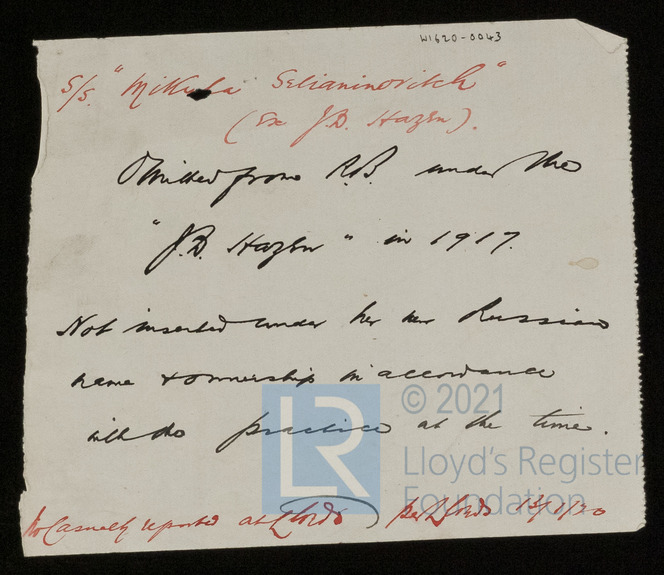 W1620-0043
S/S. "Mikula Selianinovitch"
(Ex J.D. Hazen).
Omitted from R.B. under the
"J.D. Hazen" in 1917.
Not inserted under her new Russian
name & ownership in accordance
with the practice at the time.
© 2021
LR
Lloyd's Register
Foundation
No Casualty reported at Lloyds per Lloyds